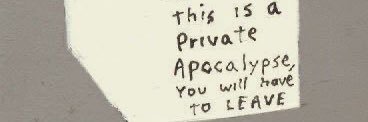 this is a
Private
Apocalypse,
You will have
TO LEAVE